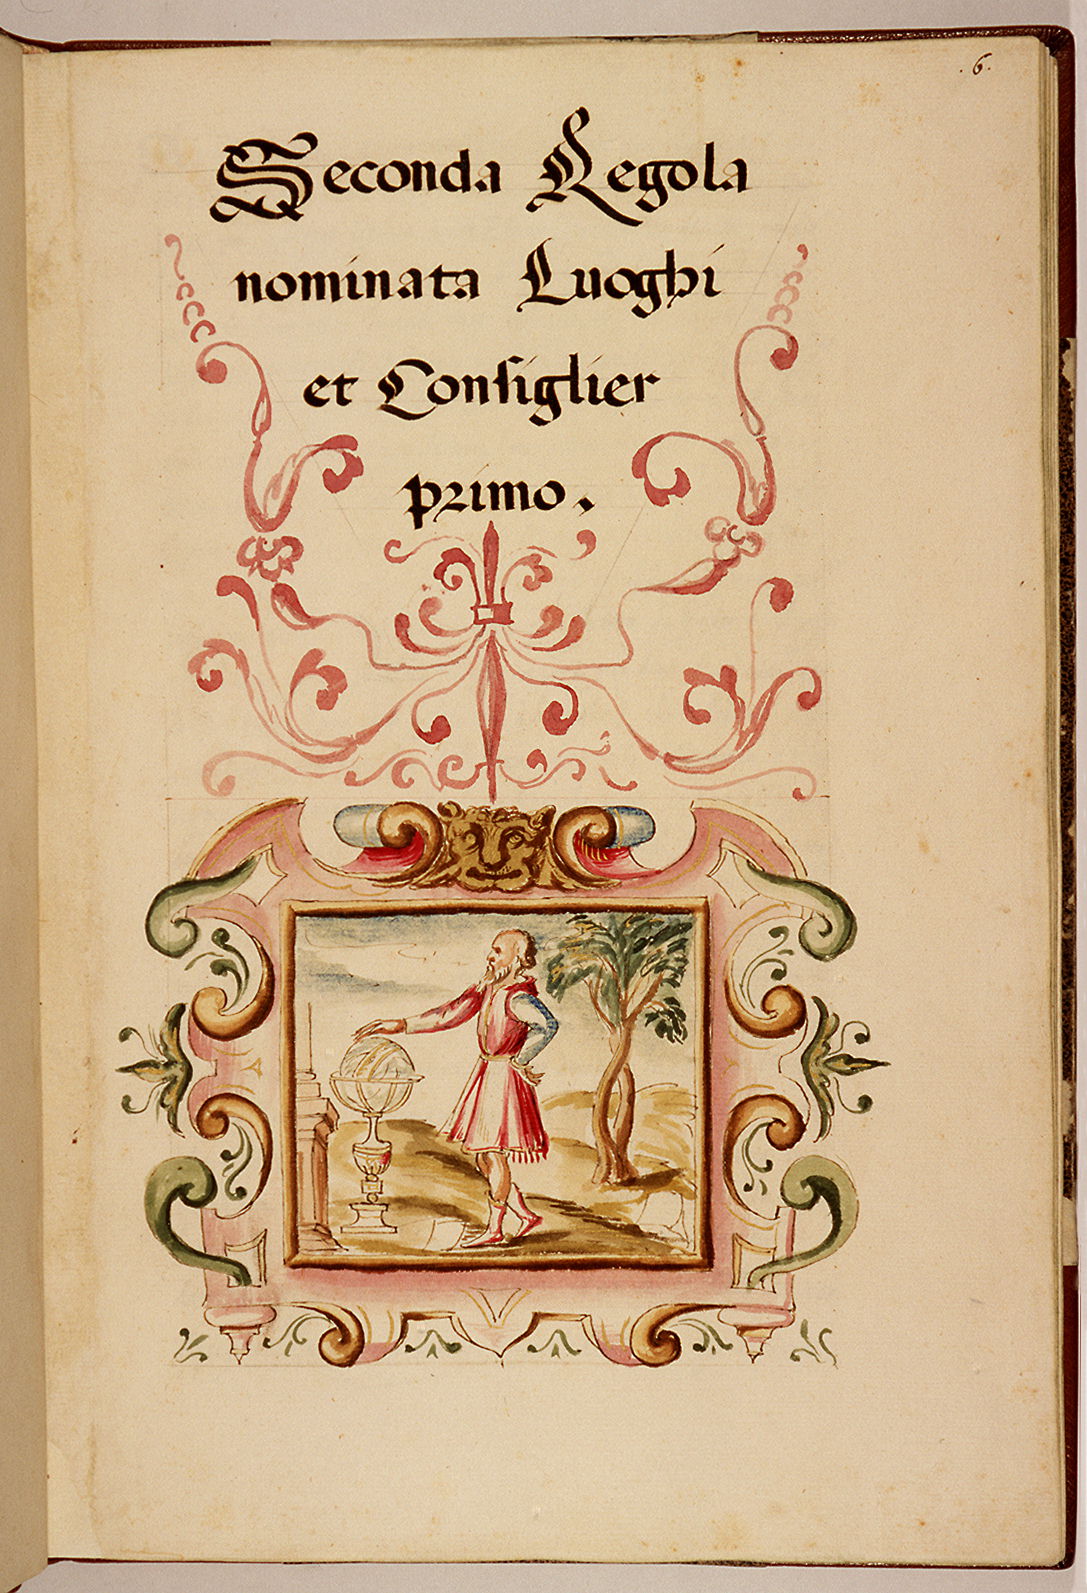 .6.
Seconda Regola
nominata Luoghi
et Conſiglier
primo.